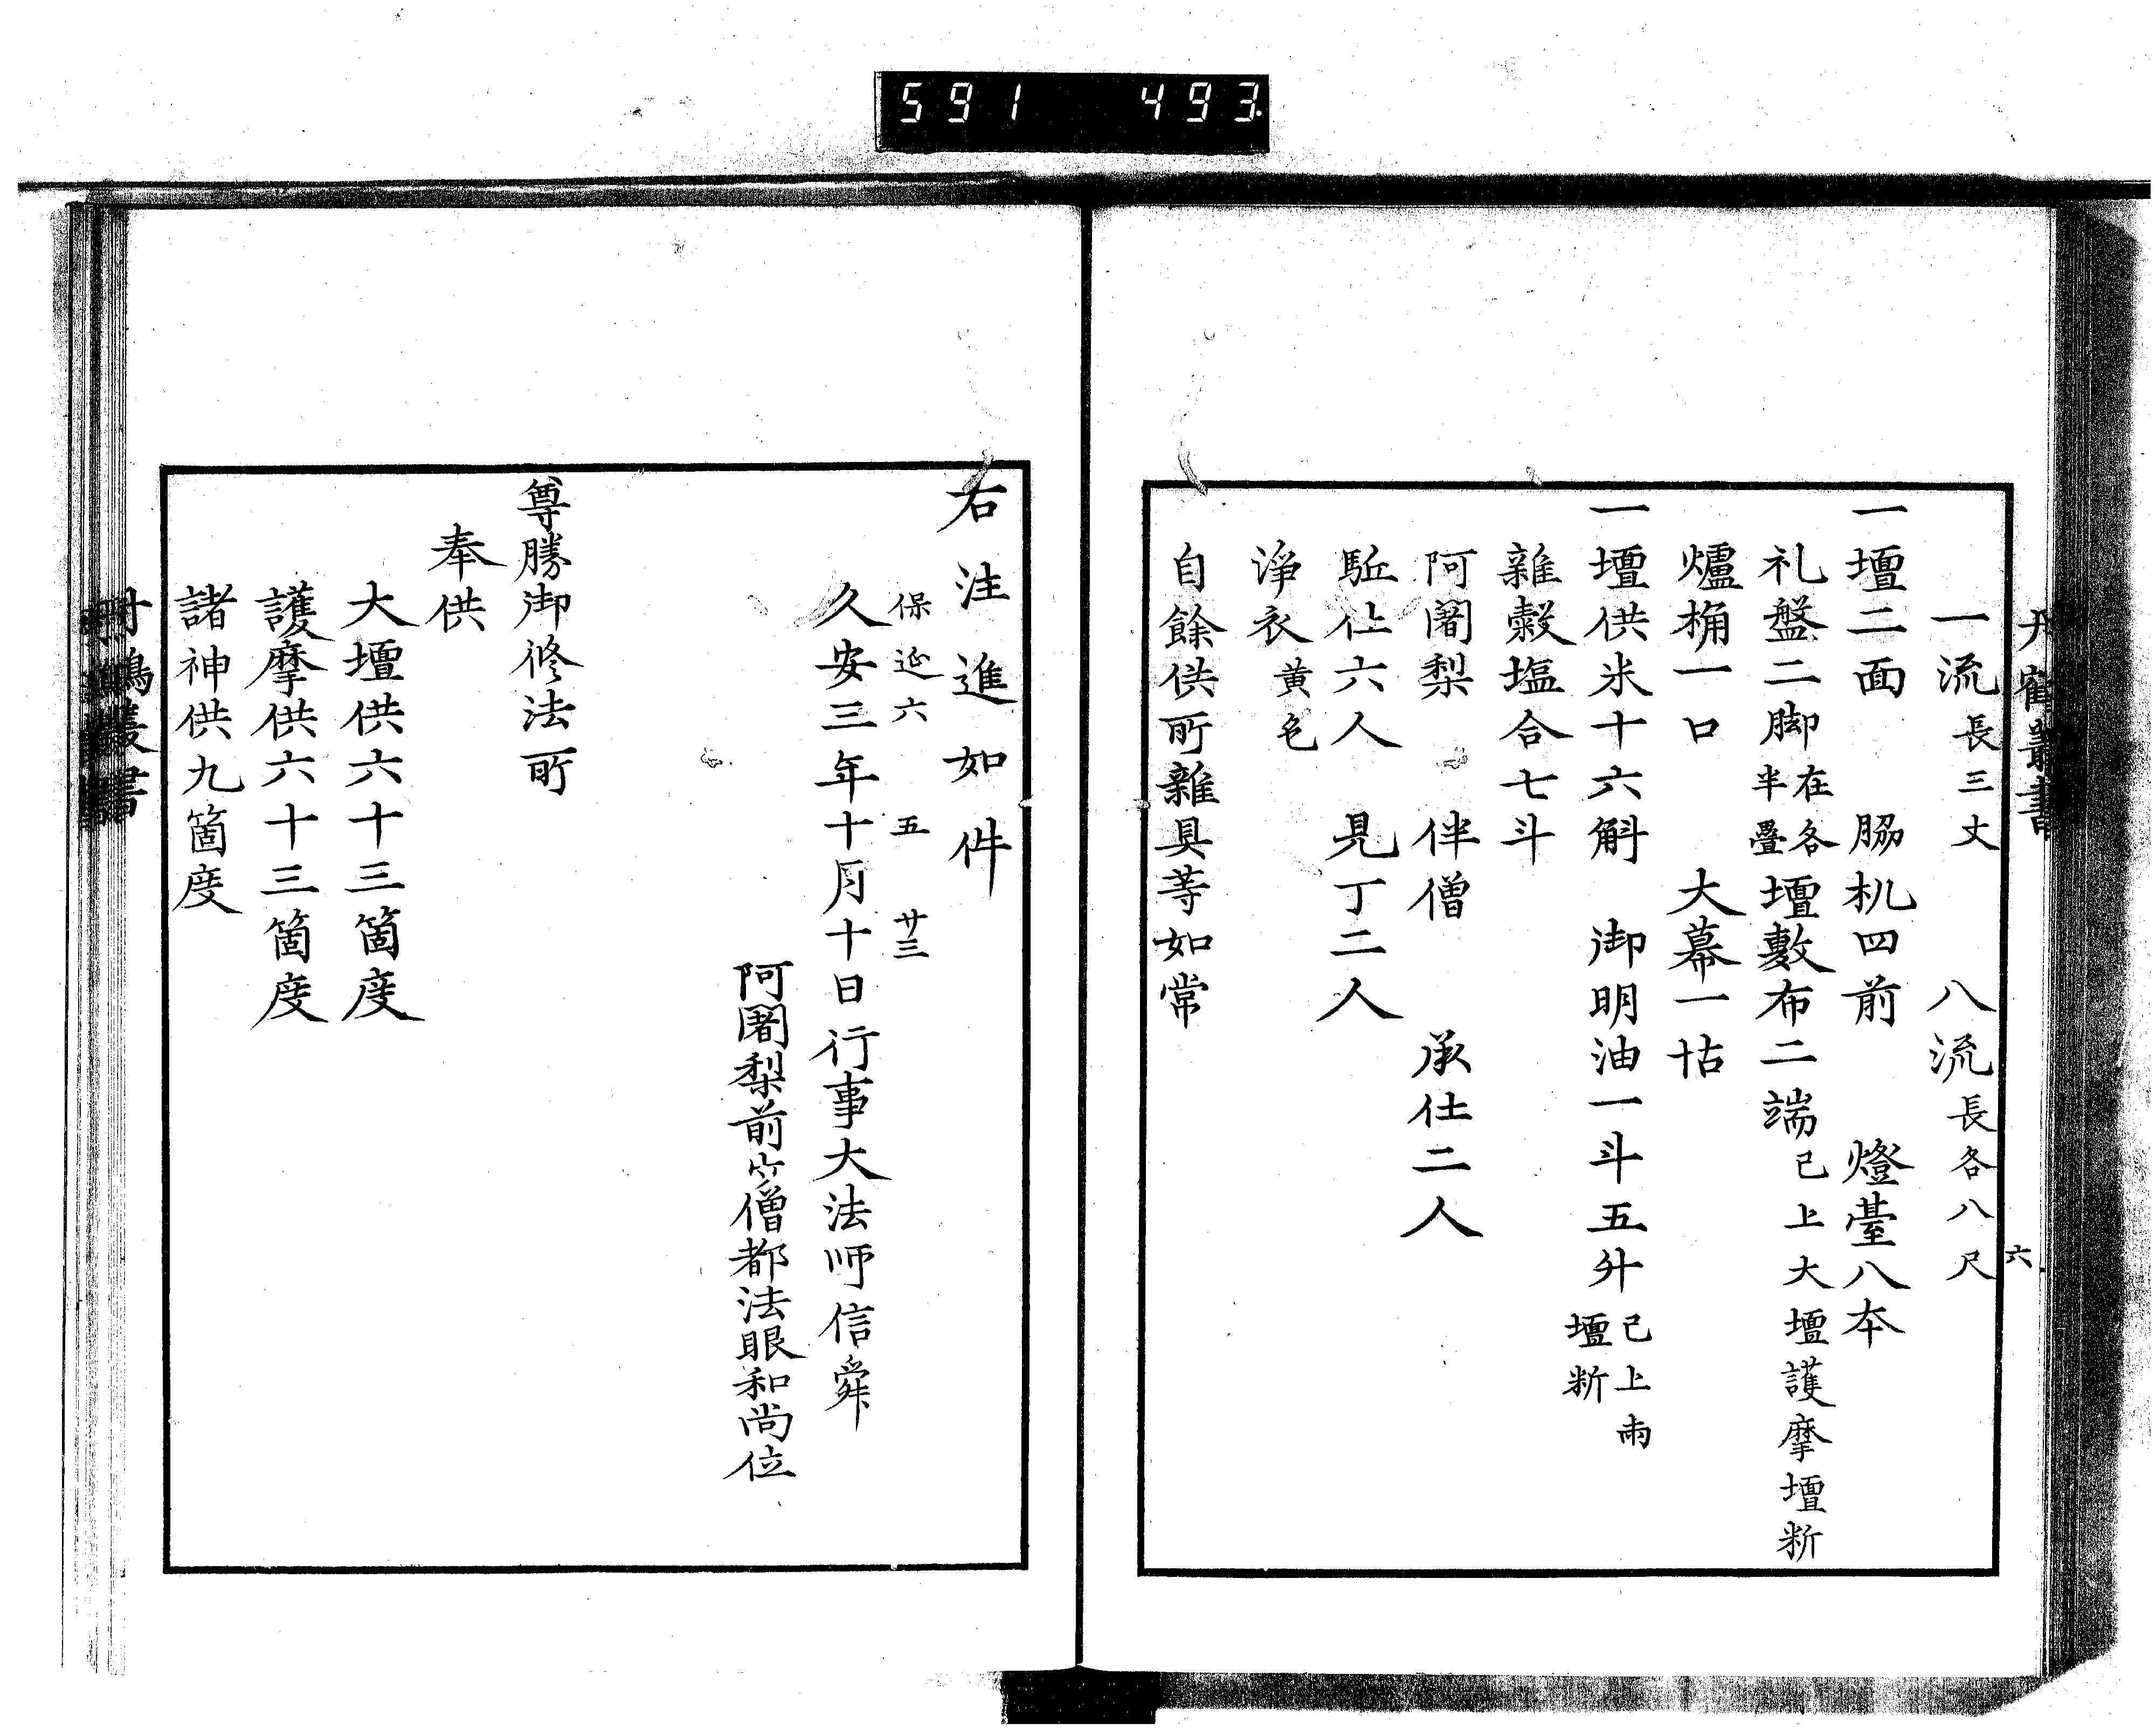 591 493
丹鶴叢書
六
一流長三丈 八流長各八尺
一壇二面 脇机四前 燈臺八本
礼盤二脚在各半疊壇敷布二端已上大壇護摩壇新
爐桶一口 大幕一帖
一壇供米十六斛 御明油一斗五升已上兩壇新
雜穀塩合七斗
阿闍梨 伴僧 承仕二人
駈仕六人 見丁二人
淨衣黄色
自餘供所雜具等如常
右注進如件
保延六 五 廿三
久安三年十月十日行事大法师信舜
阿闍梨前 僧都法眼和尚位
尊勝御修法所
奉供
大壇供六十三箇度
護摩供六十三箇度
諸神供九箇度
叢書